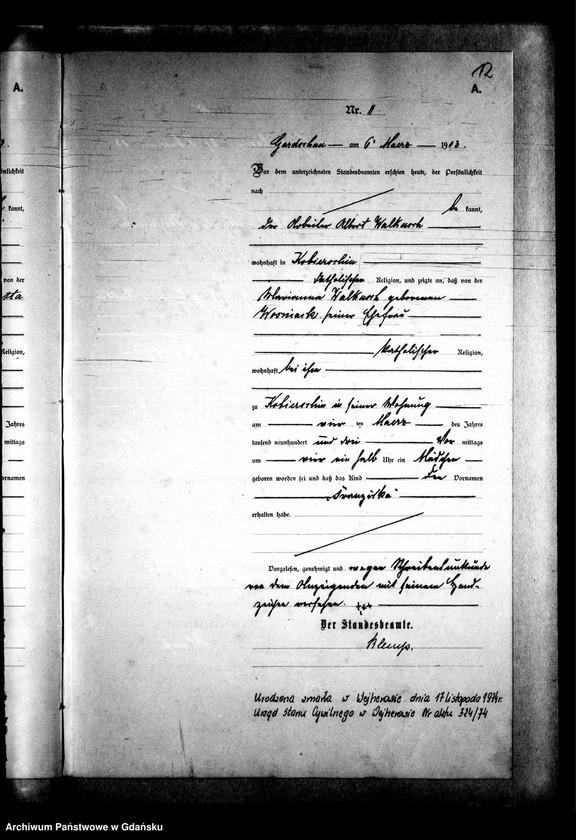 12
A.
A.
Nr. 11
Gardschau am 6 Maerz 1903.
Vor dem unterzeichneten Standesbeamten erschien heute, der Persönlichkeit
nach
be kannt,
kannt,
der Arbeiter Albert Walkusch
wohnhaft in Kobierschin
katholischer Religion, und zeigte an, daß von der
von der
Marianna Walkusch geborenen
Wosniack seiner Ehefrau
katholischer Religion,
Religion,
wohnhaft bei ihm
zu Kobierschin in seiner Wohnung
am vier ten Maerz des Jahres
Jahres
tausend neunhundert und drei Vor mittags
mittags
um vier ein halb Uhr ein Mädchen
geboren worden sei und daß das Kind den Vornamen
"Franziska"
erhalten habe.
Vorgelesen, genehmigt und wegen Schreibensunkunde
von dem Anzeigenden mit seinem Hand-
zeichen versehen. +++
Der Standesbeamte.
Klemp.
Urodzona zmarła w Wejherowie dnia 17 listopada 1974r.
Urząd Stanu Cywilnego w Wejherowie Nr aktu 324/74
Archiwum Państwowe w Gdańsku